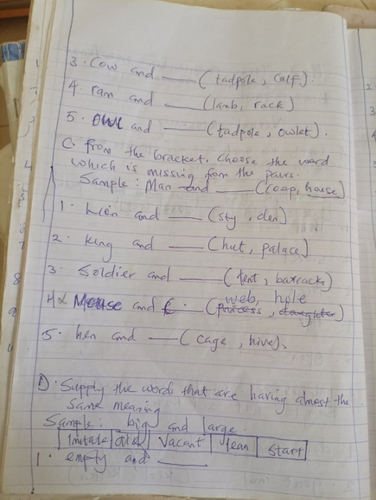 3. Cow and ___ (tadpole, calf).
4. ram and ___ (lamb, rack)
5. owl and ___ (tadpole, owlet).
C. from the bracket, choose the word
which is missing from the pairs.
Sample: Man and ___ (coop, house)
1. Lion and ___ (sty, den)
2. king and ___ (hut, palace)
3. Soldier and ___ (tent, barracks)
web, hole
4. Mouse and (princess, daughter)
5. hen and ___ (cage, hive).
D. Supply the words that are having almost the
same meaning
Sample: big and large
imitate old vacant lean start
1. empty and ___